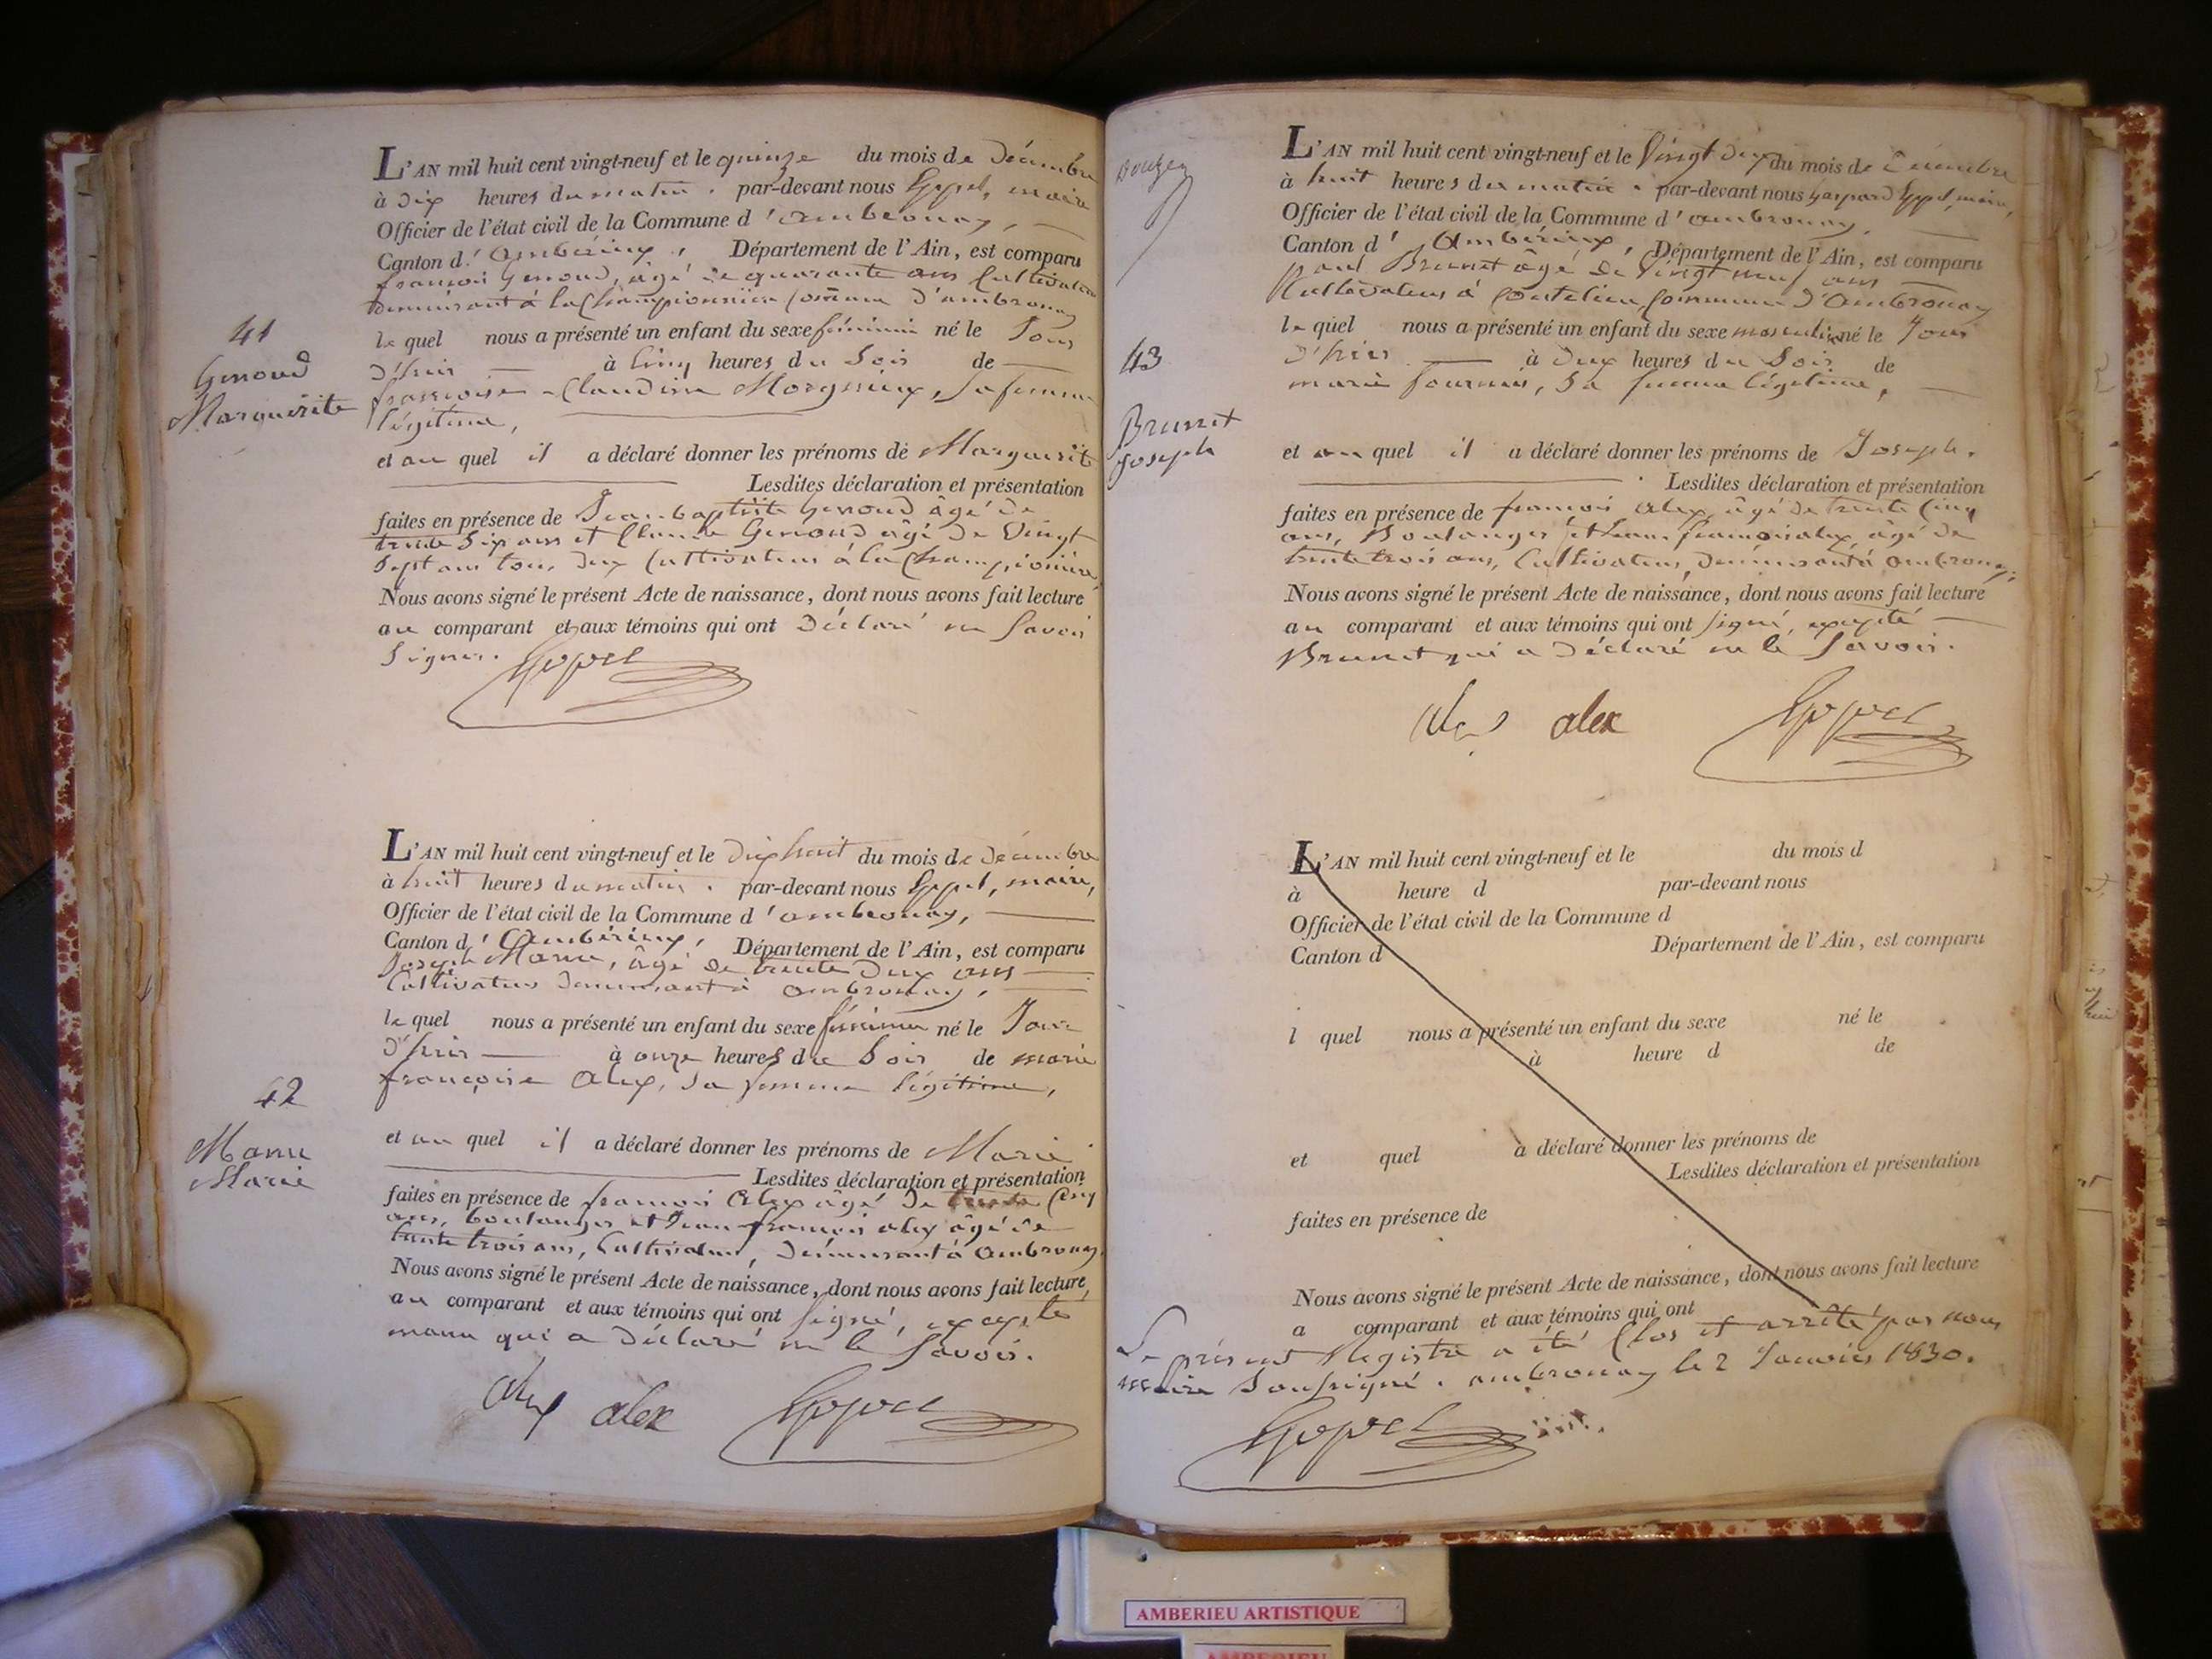 L'AN mil huit cent vingt-neuf et le quinze du mois de Décembre
à Dix heures du matin . par-devant nous Goppel, maire
Officier de l'état civil de la Commune d'ambronay,
Canton d'Ambérieux, Département de l'Ain, est comparu
françois Genoud, âgé de quarante ans Cultivateur
Demeurant à la Championnière Commune d'ambronay
41
Genoud
Marguerite
le quel nous a présenté un enfant du sexe féminin né le Jour
D'hier à Cinq heures du Soir de
françoise Claudine Morgnieux, sa femme
légitime,
et au quel il a déclaré donner les prénoms de Marguerite
Lesdites déclaration et présentation
faites en présence de Jean baptiste Genoud âgé de
trente Six ans et Claude Genoud âgé de Vingt
Sept ans tous deux Cultivateurs à la Championière,
Nous avons signé le présent Acte de naissance, dont nous avons fait lecture
au comparant et aux témoins qui ont Déclaré ne Savoir
Signer.
L'AN mil huit cent vingt-neuf et le Dix huit du mois de Décembre
à huit heures du matin . par-devant nous Goppel, maire,
Officier de l'état civil de la Commune d'ambronay,
Canton d'Ambérieux, Département de l'Ain, est comparu
Joseph Manu, âgé de trente Deux ans
Cultivateur Demeurant à ambronay,
le quel nous a présenté un enfant du sexe féminin né le Jour
D'hier à onze heures du Soir de marie
françoise Alex, sa femme légitime,
42
Manu
Marie
et au quel il a déclaré donner les prénoms de Marie
Lesdites déclaration et présentation
faites en présence de françois Alex âgé de trente Cinq
ans, boulanger et Jean françois alex âgé de
trente trois ans, Cultivateur, Demeurant à Ambronay
Nous avons signé le présent Acte de naissance, dont nous avons fait lecture,
au comparant et aux témoins qui ont signé, excepté
manu qui a Déclaré ne le Savoir.
alex alex
L'AN mil huit cent vingt-neuf et le Vingt Deux du mois de Décembre
à huit heures du matin . par-devant nous Gaspard Goppel, maire,
Officier de l'état civil de la Commune d'ambronay,
Canton d'Ambérieux, Département de l'Ain, est comparu
paul Brunet âgé de Vingt neuf ans
Cultivateur à Coutelieu, Commune d'Ambronay
le quel nous a présenté un enfant du sexe masculin né le Jour
D'hier à Deux heures du Soir de
marie fournier, Sa femme légitime,
43
Brunet
Joseph
et au quel il a déclaré donner les prénoms de Joseph.
Lesdites déclaration et présentation
faites en présence de françois Alex, âgé de trente Cinq
ans, Boulanger et Jean françois alex, âgé de
trente trois ans, Cultivateur, Demeurant à ambronay;
Nous avons signé le présent Acte de naissance, dont nous avons fait lecture
au comparant et aux témoins qui ont signé, excepté
Brunet qui a Déclaré ne le Savoir.
alex alex
L'AN mil huit cent vingt-neuf et le du mois d
à heure d par-devant nous
Officier de l'état civil de la Commune d
Canton d Département de l'Ain, est comparu
l quel nous a présenté un enfant du sexe né le
à heure d de
et quel a déclaré donner les prénoms de
Lesdites déclaration et présentation
faites en présence de
Nous avons signé le présent Acte de naissance, dont nous avons fait lecture
a comparant et aux témoins qui ont
Le présent Registre a été Clos et arrêté par nous
maire Soussigné. ambronay le 2 Janvier 1830.
AMBERIEU ARTISTIQUE
AMBERIEU